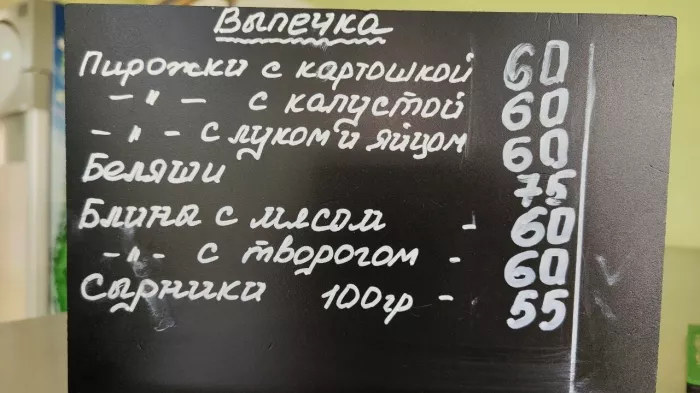 Выпечка
Пирожки с картошкой 60
– " – с капустой 60
– " – с луком и яйцом 60
Беляши 75
Блины с мясом - 60
– " – с творогом - 60
Сырники 100гр - 55